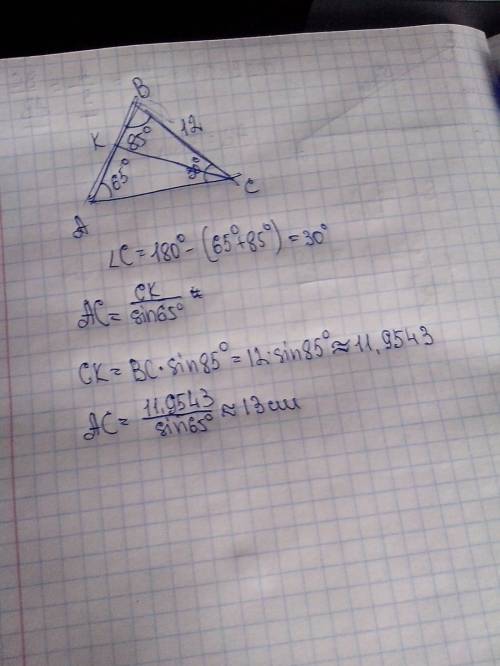 B
K
85°
12
65°
30°
A
C
∠C = 180° - (65° + 85°) = 30°
AC = CK / sin65°
CK = BC · sin85° = 12 · sin85° ≈ 11,9543
AC = 11,9543 / sin65° ≈ 13 см